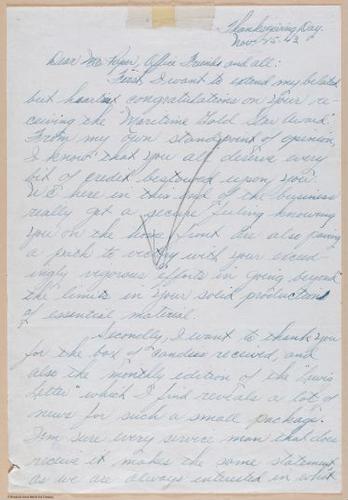 Thanksgiving Day.
Nov. 25 - 43
Dear Mr. Piper, Office Friends and all:
First, I want to extend my belated
but heartiest congratulations on your re-
ceiving the "Maritime Gold Star Award."
From my own standpoint of opinion,
I know that you all deserve every
bit of credit bestowed upon you.
We here in this end of the business
really get a secure feeling knowing
you on the home front are also giving
a push to victory with your exceed-
ingly vigorous efforts in going beyond
the limits in your solid productions
of essential material.
Secondly, I want to thank you
for the box of candies received, and
also the monthly edition of the
Letter" which I find reveals a lot of
news for such a small package.
I'm sure every service man that does
receive it makes the same statement
as we are always interested in what